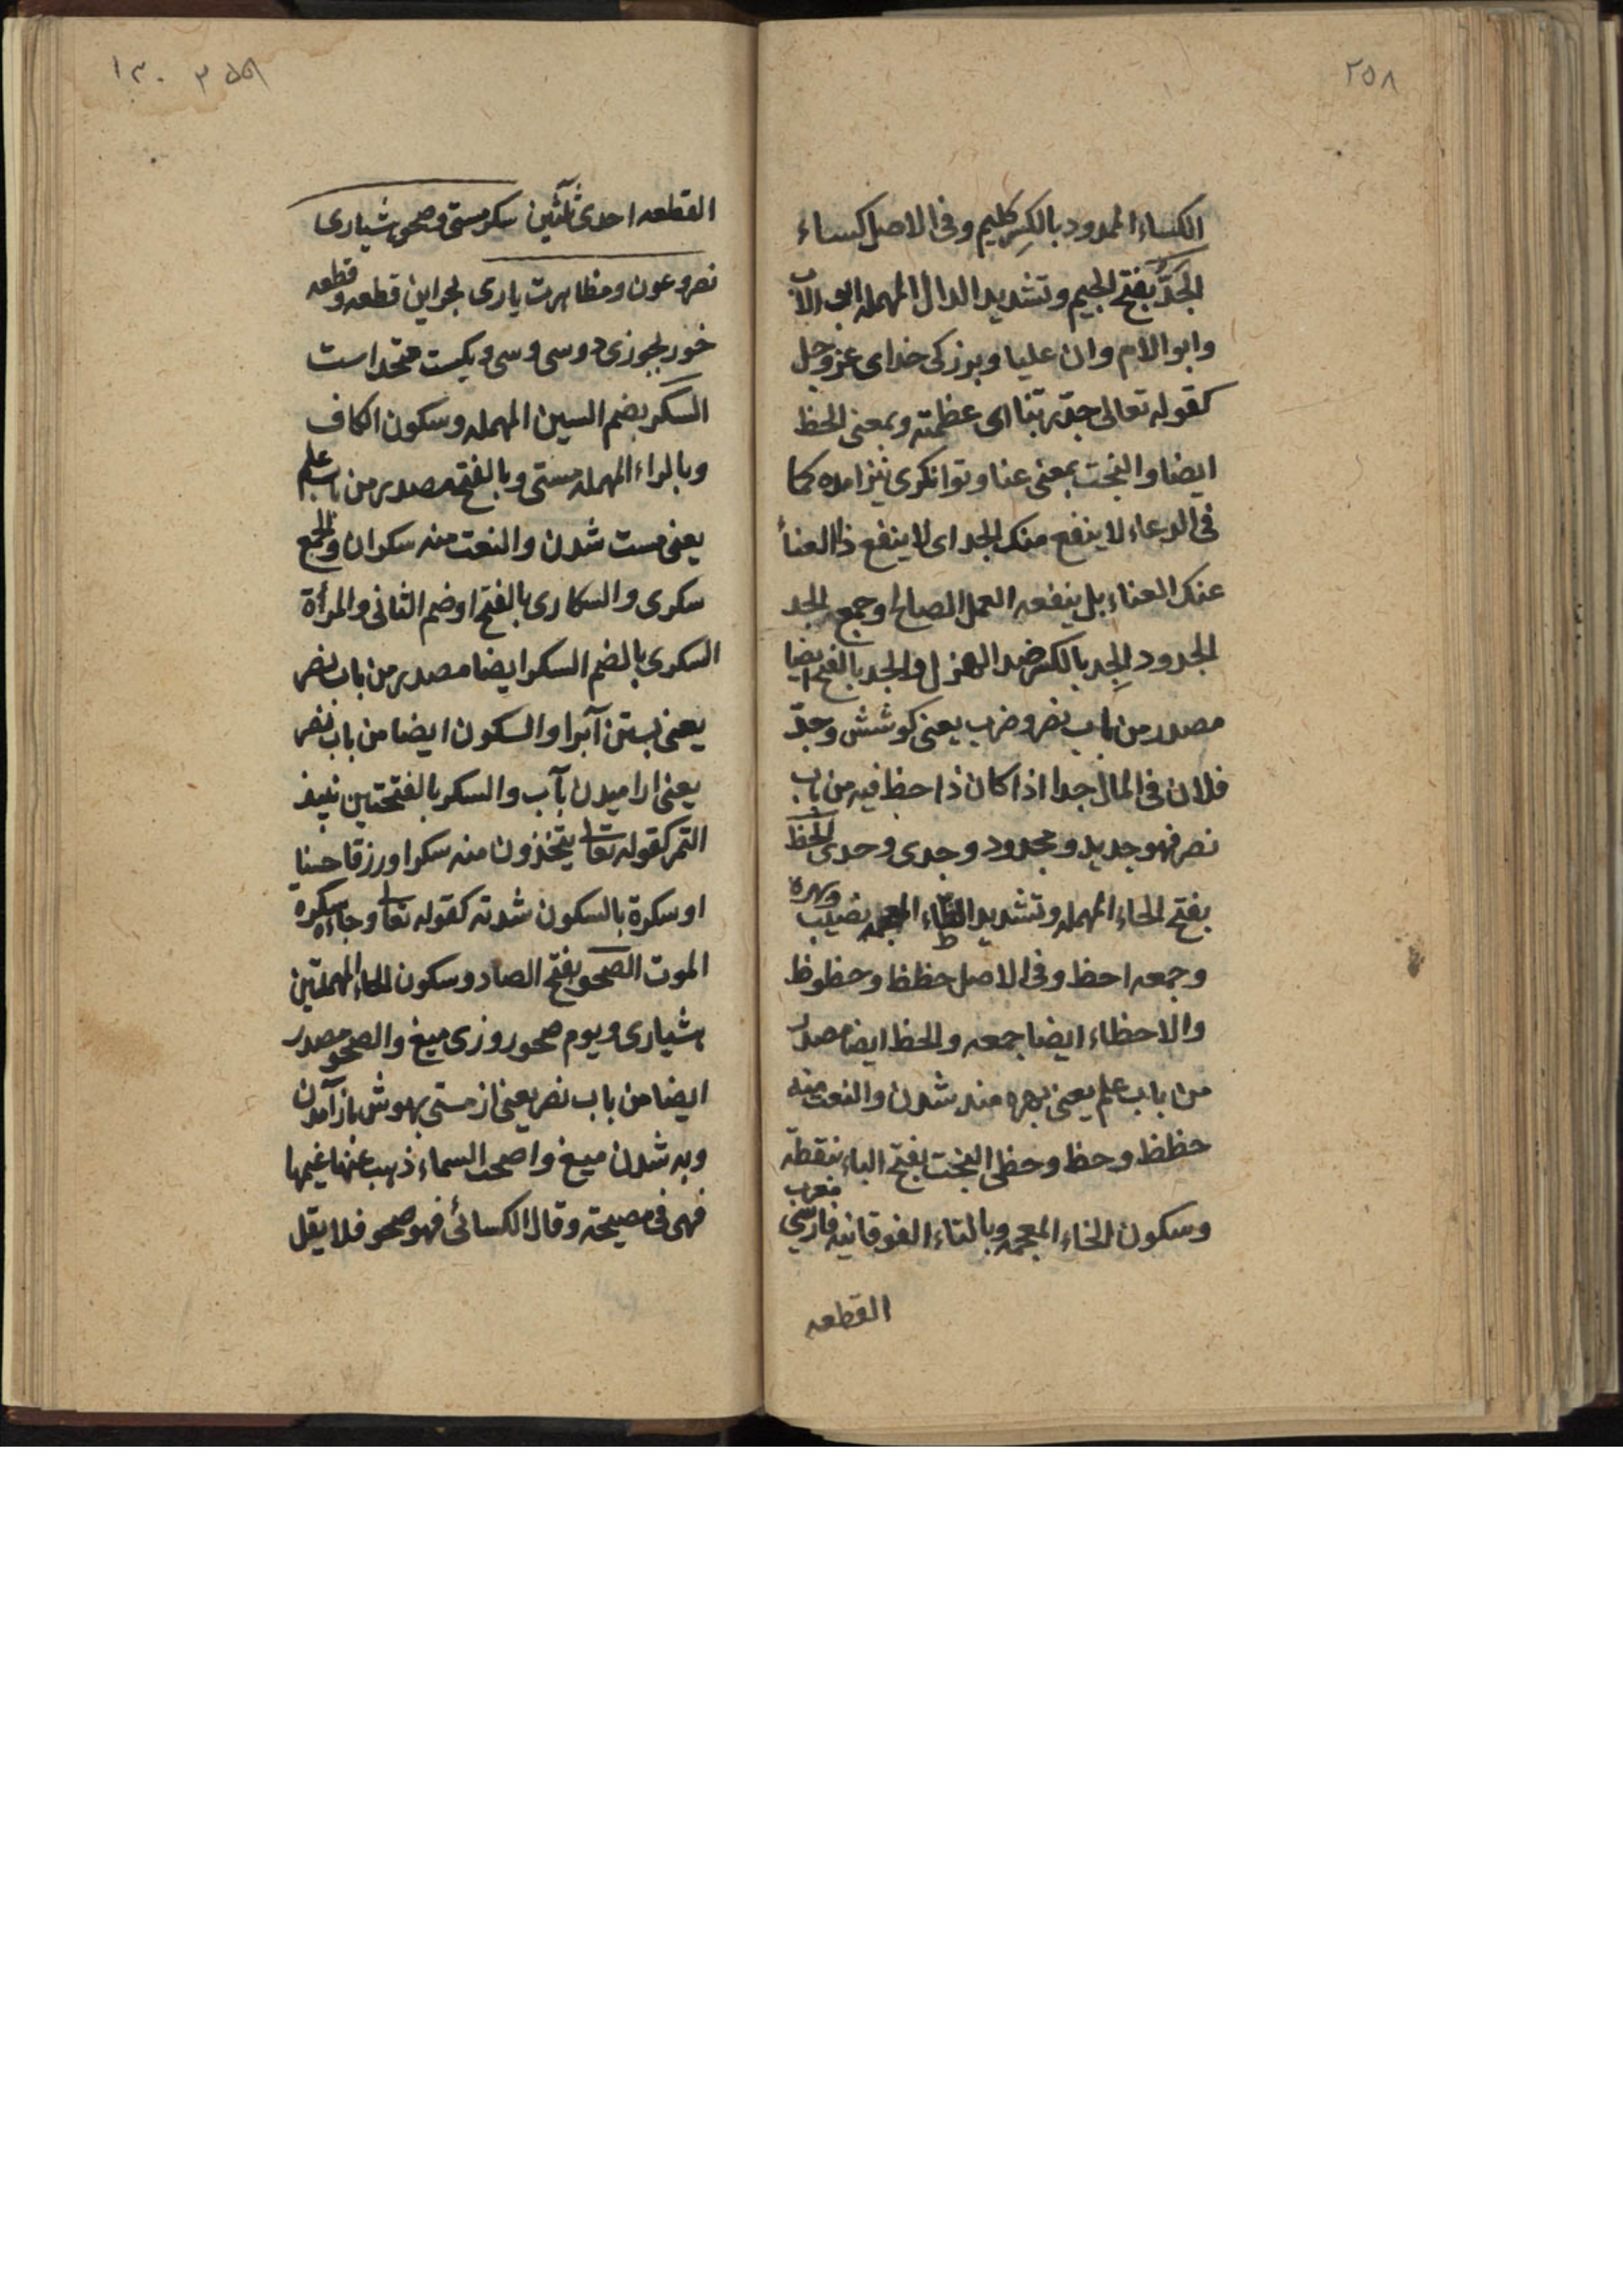 ٢٥٨
الكساء الممدود بالكسر كليم وفى الاصل كساء
الجدّ بفتح الجيم وتشديد الدال المهمله ابو الاب
وابو الام وان عليا وبزركى خداى عز وجل
كقوله تعالى جدّ ربّنا اى عظمته وبمعنى الحظ
ايضا والبخت بمعنى عنا وتوانكرى نيز امده كما
فى الدعاء لا ينفع منك الجد اى لا ينفع ذا العنأ
عنك العناء بل ينفعه العمل الصالح وجمعه الجد
الجدود الجِد بالكسر ضد الهزل والجد بالفتح ايضا
مصدر من باب نصر وضرب يعنى كوشش وجدّ
فلان فى المال جدا اذا كان ذا حظ فيه من باب
نصر فهو جديد ومجدود وجدى وحدى الحظ
بفتح الحاء المهمله وتشديد الظاء المعجمه نصيب وبهره
وجمعه احظ وفى الاصل حظظ وحظوظ
والاحظاء ايضا جمعه والحظ ايضا مصدر
من باب علم يعنى بهره مند شدن والنعت منه
حظظ وحظ وحظى البخت بفتح الباء بنقطة
وسكون الخاء المعجمه وبالتاء الفوقانيه فارسي معرب
القطعه
القطعه احدى ثلثين سكر مستى وصحو هشيارى
نصر وعون ومظاهرت يارى بحر اين قطعه وقطعه
خور بجوزى دوسى وسى ويكيست متحد است
السكر بضم السين المهمله وسكون الكاف
وبالراء المهمله مستى وبالفتح مصدر من باب علم
يعنى مست شدن والنعت منه سكران والجمع
سكرى والسكارى بالفتح او ضم الثانى والمرأة
السكرى بالضم السكر ايضا مصدر من باب نصر
يعنى بستن آبرا والسكون ايضا من باب نصر
يعنى اراميدن بآب والسكر بالفتحتين نبيذ
التمر كقوله تعا يتخذون منه سكرا ورزقا حسنا
او سكرة بالسكون شدته كقوله تعا وجاءه سكره
الموت الصحو بفتح الصاد وسكون الحاء المهملتين
هشيارى ويوم صحو روزى ميغ والصحو مصدر
ايضا من باب نصر يعنى از مستى بهوش باز آمدن
وبه شدن ميغ واصحت السماء ذهب عنها غيمها
فهى فى مصيحة وقال الكسائى فهو صحو فلا يقل